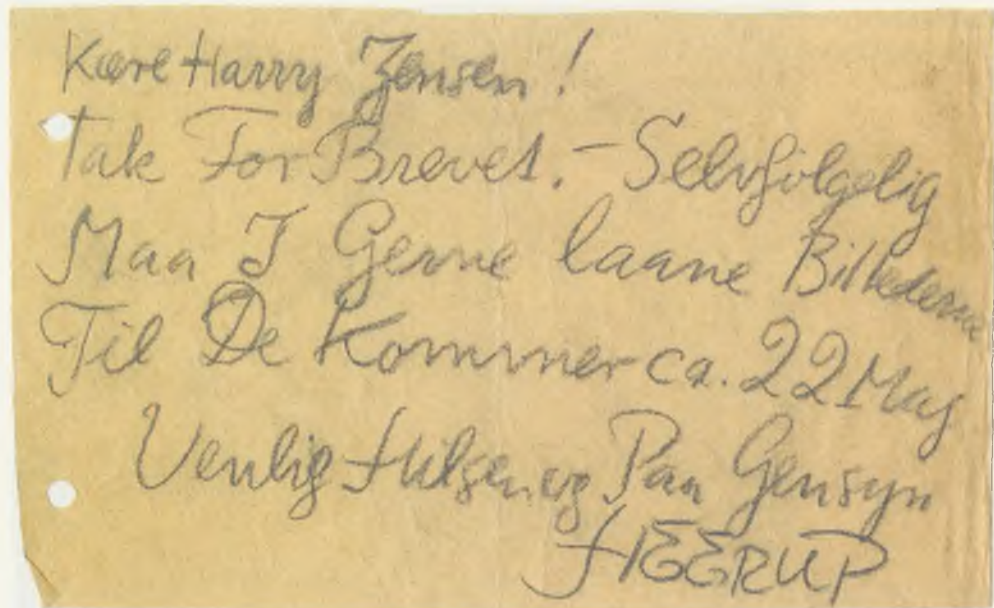 Kære Harry Jensen!
Tak For Brevet. – Selvfølgelig
Maa I Gerne laane Billederne
Til De Kommer ca. 22 Maj
Venlig Hilsen og Paa Gensyn
HEERUP